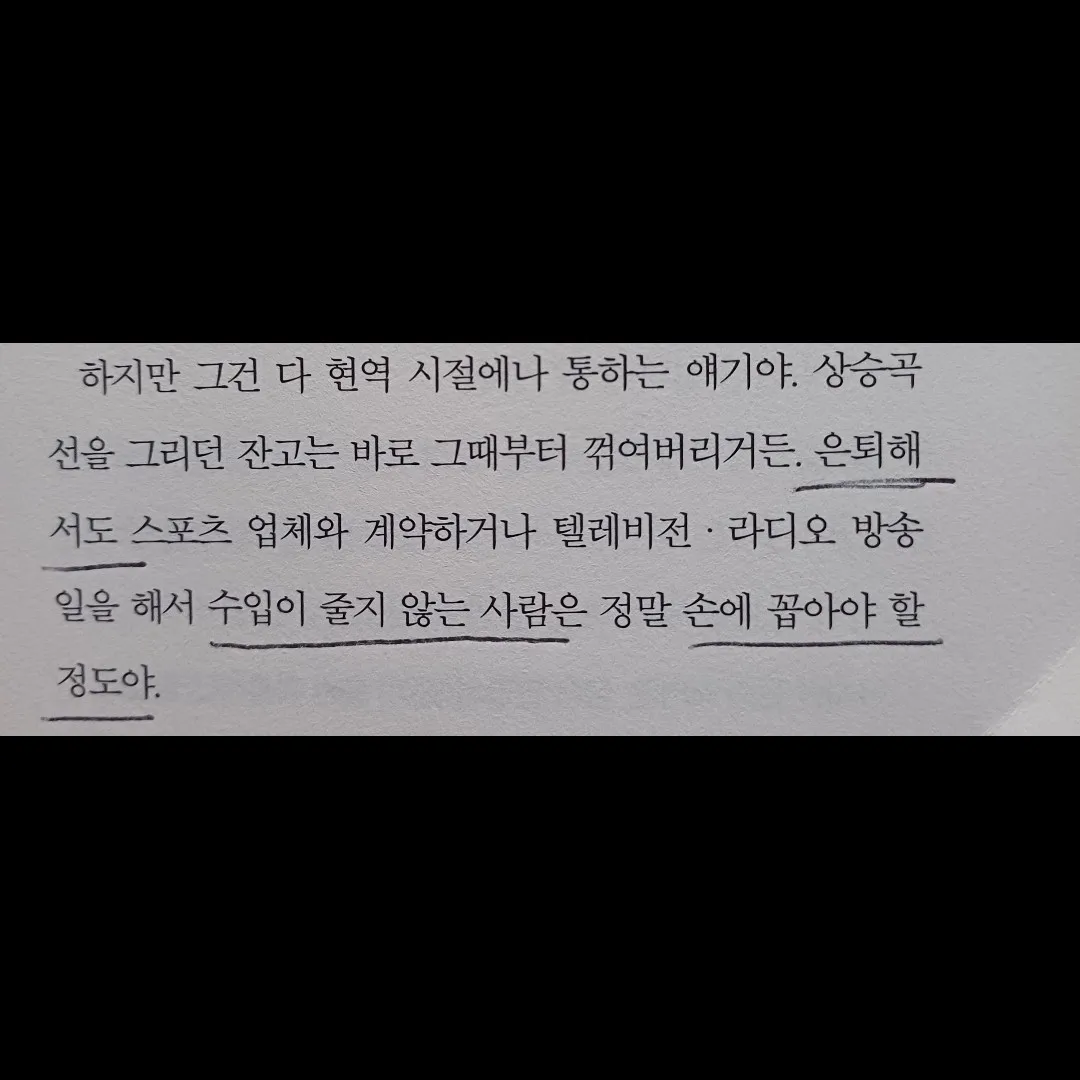 하지만 그건 다 현역 시절에나 통하는 얘기야. 상승곡
선을 그리던 잔고는 바로 그때부터 꺾여버리거든. 은퇴해
서도 스포츠 업체와 계약하거나 텔레비전 · 라디오 방송
일을 해서 수입이 줄지 않는 사람은 정말 손에 꼽아야 할
정도야.